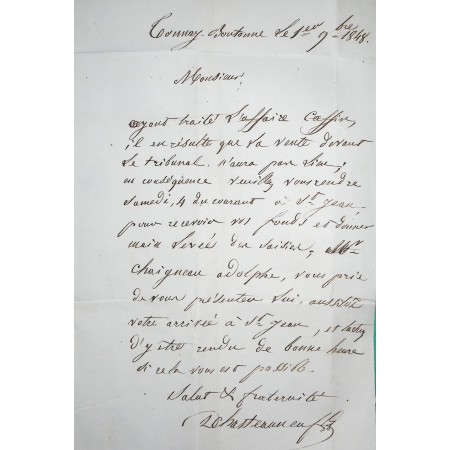 Tonnay-Boutonne le 1er 9bre 1848.
Monsieur
ayant traité l'affaire Caffin,
il en résulte que la vente devant
le tribunal n'aura pas lieu;
en conséquence veuillez vous rendre
samedi, 4 du courant à St Jean
pour recevoir vos fonds et donner
main levée du saisie, Mr
Chaigneau adolphe, vous prie
de vous présenter lui, aussitôt
votre arrivée à St Jean, et tachez
d'y être rendu de bonne heure
si cela vous est possible.
Salut & fraternité